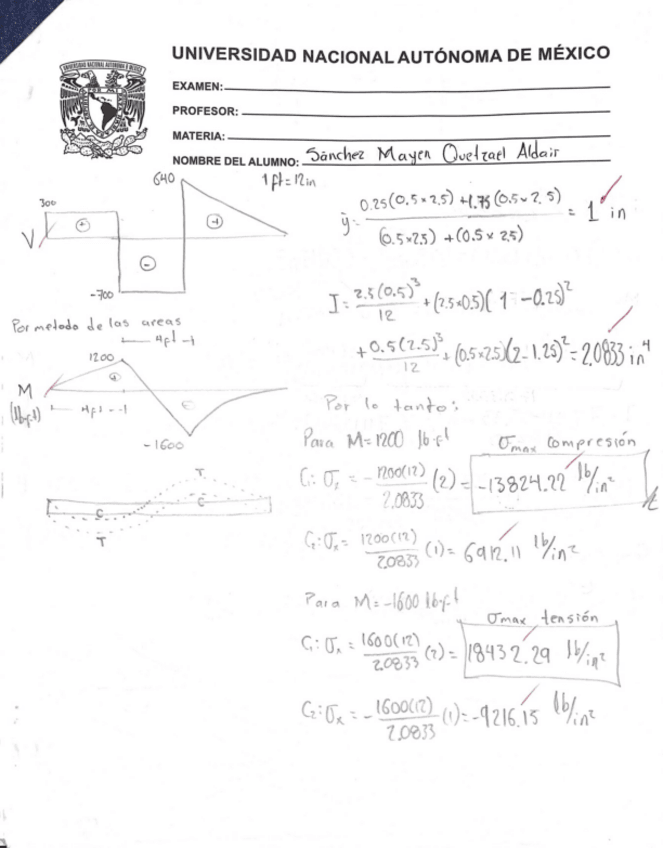 UNIVERSIDAD NACIONAL AUTÓNOMA DE MÉXICO
EXAMEN:
PROFESOR:
MATERIA:
NOMBRE DEL ALUMNO: Sánchez Mayen Quetzael Aldair
640
1 ft = 12 in
300
V
+
+
-
-700
ŷ = 0.25(0.5×2.5) + 1.75(0.5×2.5) / (0.5×2.5) + (0.5×2.5) = 1 in
I = 2.5(0.5)³/12 + (2.5×0.5)(1-0.25)²
+ 0.5(2.5)³/12 + (0.5×2.5)(2-1.25)² = 2.0833 in⁴
Por metodo de las areas
4ft
1200
+
M
(lb·ft)
4ft
-1600
T
C
C
T
Por lo tanto:
Para M=1200 lb·ft
σmax compresión
C₁: σx = -1200(12)/2.0833 (2) = -13824.22 lb/in²
C₂: σx = 1200(12)/2.0833 (1) = 6912.11 lb/in²
Para M=-1600 lb·ft
σmax tensión
C₁: σx = 1600(12)/2.0833 (2) = 18432.29 lb/in²
C₂: σx = -1600(12)/2.0833 (1) = -9216.15 lb/in²